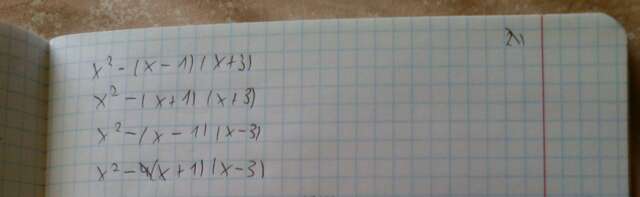 x² - (x - 1) (x + 3)
x² - (x + 1) (x + 3)
x² - (x - 1) (x - 3)
x² - (x + 1) (x - 3)